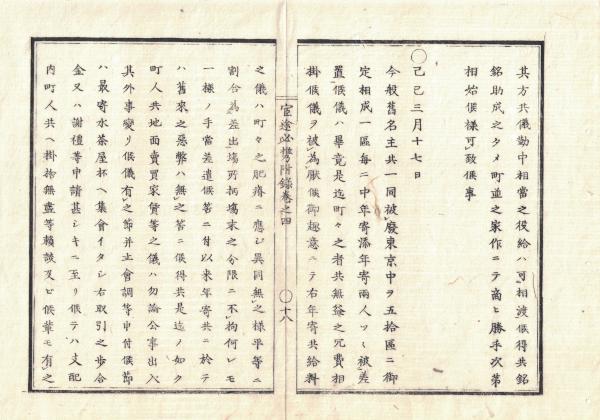 其方共儀勤中相當之役給ハ可相渡候得共銘
銘助成之タメ町並之家作ニテ商ヒ勝手次第
相始候樣可致候事
〇己巳三月十七日
今般舊名主共一同被廢東京中ヲ五拾區ニ御
定相成一區每ニ中年寄添年寄兩人ツヽ被差
置候儀ハ畢竟是迄町々之者共無益之冗費相
掛候儀ヲ被為厭候御趣意ニテ右年寄共給料
宦途必携附錄卷之四
〇十八
之儀ハ町々之肥瘠ニ應シ異同無之樣平等ニ
割合為差出場所柄場末之分限ニ不拘何レモ
一樣ノ手當差遣候筈ニ付以来年寄共ニ於テ
ハ舊來之惡弊ハ無之筈ニ候得共是迄ノ如ク
町人共地面賣買家賃等之儀ハ勿論公事出入
其外事變リ候儀有之節并立會調等申付候節
ハ最寄水茶屋杯ヘ集會イタシ右取引之步合
金又ハ謝禮等申請甚シキニ至リ候テハ支配
内町人共ヘ掛捨無盡等賴談又ヒ候輩モ有之